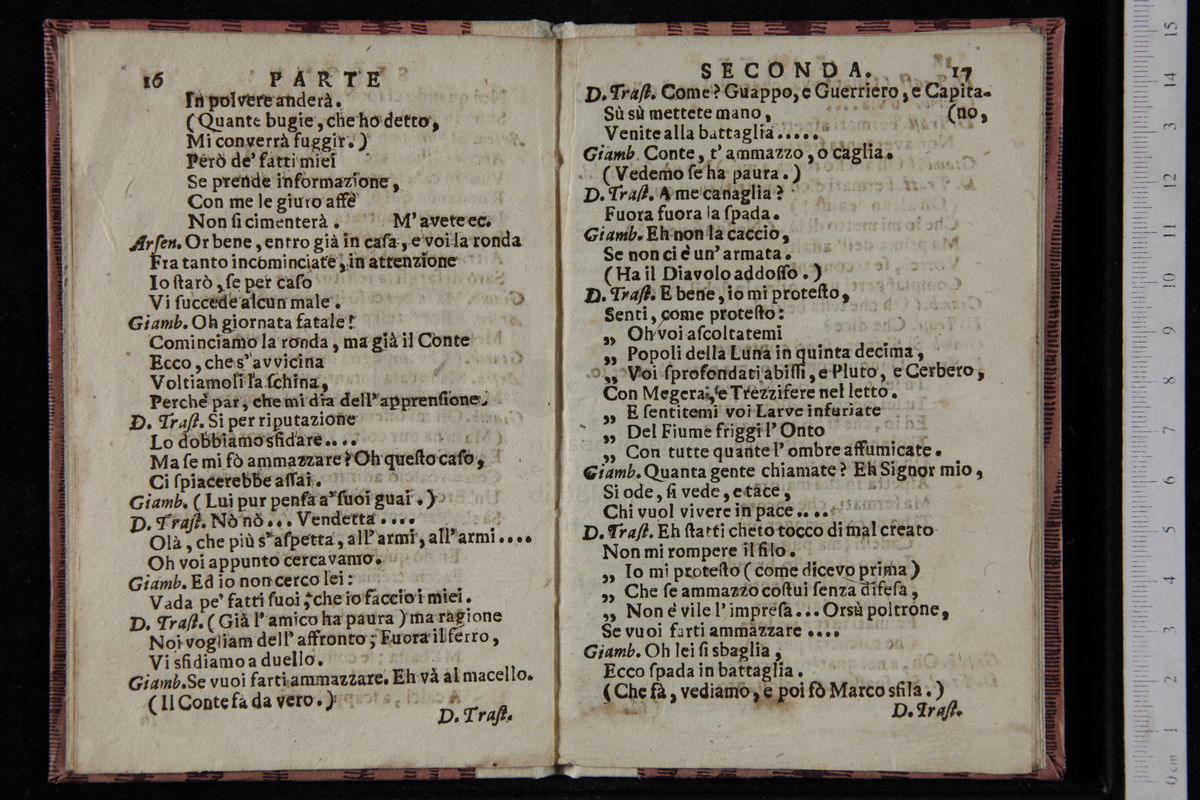 16 PARTE
In polvere anderà.
(Quante bugie, che ho detto,
Mi converrà fuggir.)
Però de' fatti miei
Se prende informazione,
Con me le giuro affè
Non si cimenterà. M' avete ec.
Arsen. Or bene, entro già in casa, e voi la ronda
Fra tanto incominciate, in attenzione
Io starò, se per caso
Vi succede alcun male.
Giamb. Oh giornata fatale!
Cominciamo la ronda, ma già il Conte
Ecco, che s' avvicina
Voltiamoli la schina,
Perchè par, che mi dia dell' apprensione.
D. Trast. Si per riputazione
Lo dobbiamo sfidare....
Ma se mi fò ammazzare? Oh questo caso,
Ci spiacerebbe assai.
Giamb. (Lui pur pensa a' suoi guai.)
D. Trast. Nò nò... Vendetta ....
Olà, che più s' aspetta, all' armi, all' armi....
Oh voi appunto cercavamo.
Giamb. Ed io non cerco lei:
Vada pe' fatti suoi; che io faccio i miei.
D. Trast. (Già l' amico ha paura) ma ragione
Noi vogliam dell' affronto; Fuora il ferro,
Vi sfidiamo a duello.
Giamb. Se vuoi farti ammazzare. Eh và al macello.
(Il Conte fa da vero.)
D. Trast.
SECONDA. 17
D. Trast. Come? Guappo, e Guerriero, e Capita-
Sù sù mettete mano, (no,
Venite alla battaglia.....
Giamb. Conte, t' ammazzo, o caglia.
(Vedemo se ha paura.)
D. Trast. A me canaglia?
Fuora fuora la spada.
Giamb. Eh non la caccio,
Se non ci è un' armata.
(Ha il Diavolo addosso.)
D. Trast. E bene, io mi protesto,
Senti, come protesto:
„ Oh voi ascoltatemi
„ Popoli della Luna in quinta decima,
„ Voi sprofondati abissi, e Pluto, e Cerbero,
Con Megera, e Trezzifere nel letto.
„ E sentitemi voi Larve infuriate
„ Del Fiume friggi l' Onto
„ Con tutte quante l' ombre affumicate.
Giamb. Quanta gente chiamate? Eh Signor mio,
Si ode, si vede, e tace,
Chi vuol vivere in pace....
D. Trast. Eh statti cheto tocco di mal creato
Non mi rompere il filo.
„ Io mi protesto (come dicevo prima)
„ Che se ammazzo costui senza difesa,
„ Non è vile l' impresa... Orsù poltrone,
Se vuoi farti ammazzare ....
Giamb. Oh lei si sbaglia,
Ecco spada in battaglia.
(Che fà, vediamo, e poi fò Marco sfila.)
D. Trast.
0 cm 1 2 3 4 5 6 7 8 9 10 11 12 13 14 15